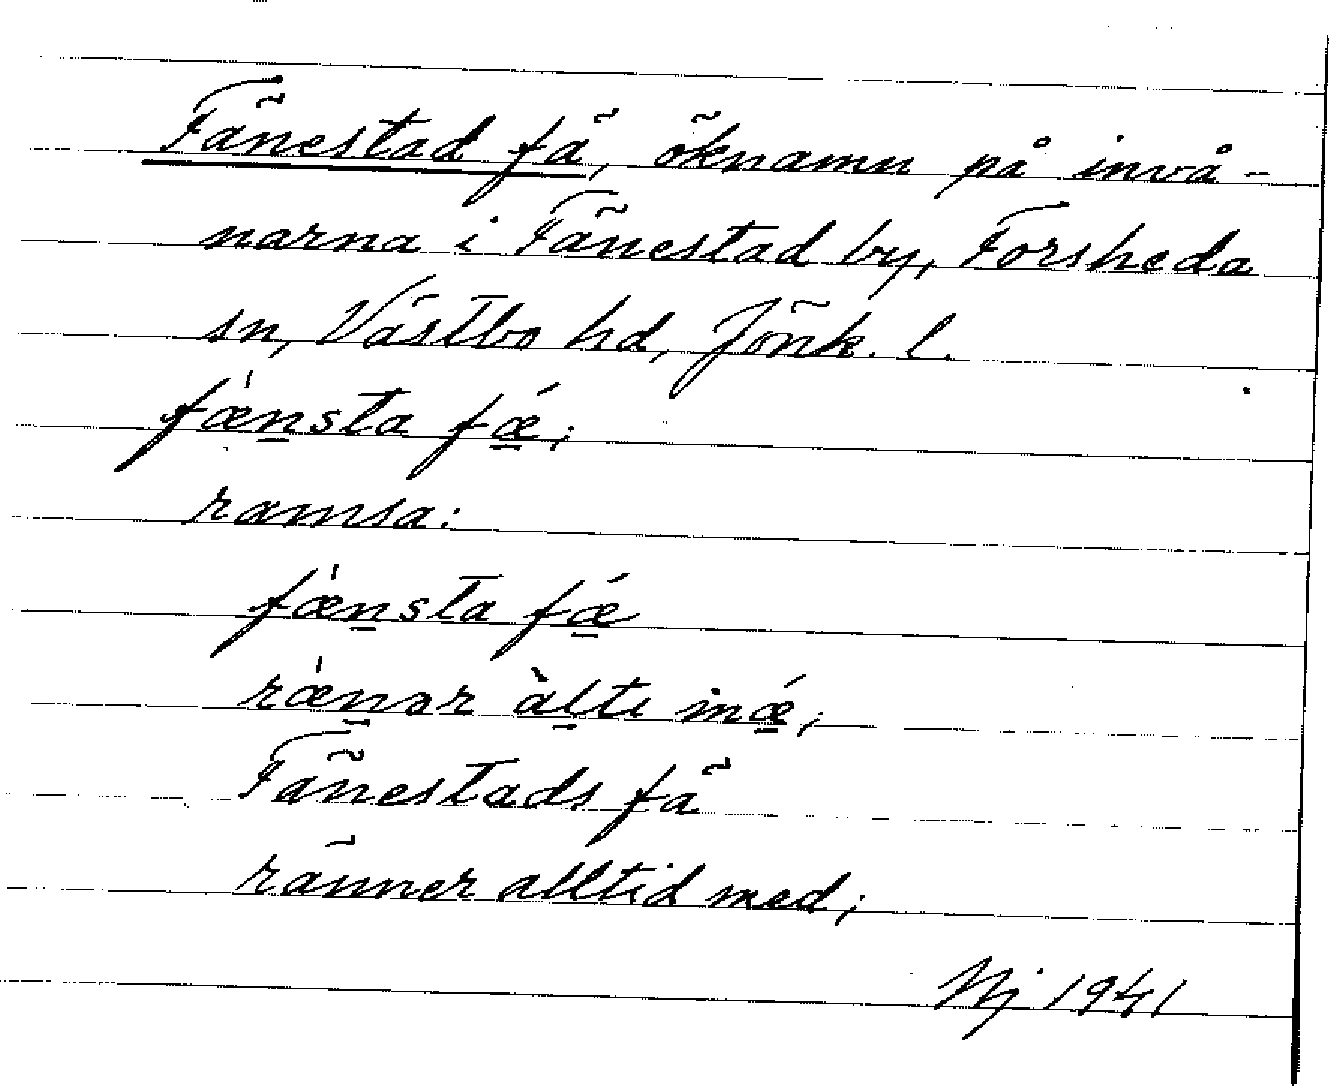 Fänestad fä, öknamn på invå-
narna i Fänestad by, Forsheda
sn, Västbo hd, Jönk. l.
fæ̀nsta fǽ;
ramsa:
fæ̀nsta fǽ
ræ̀nər àlti mǽ;
Fänestads fä
ränner alltid med;
Nj 1941